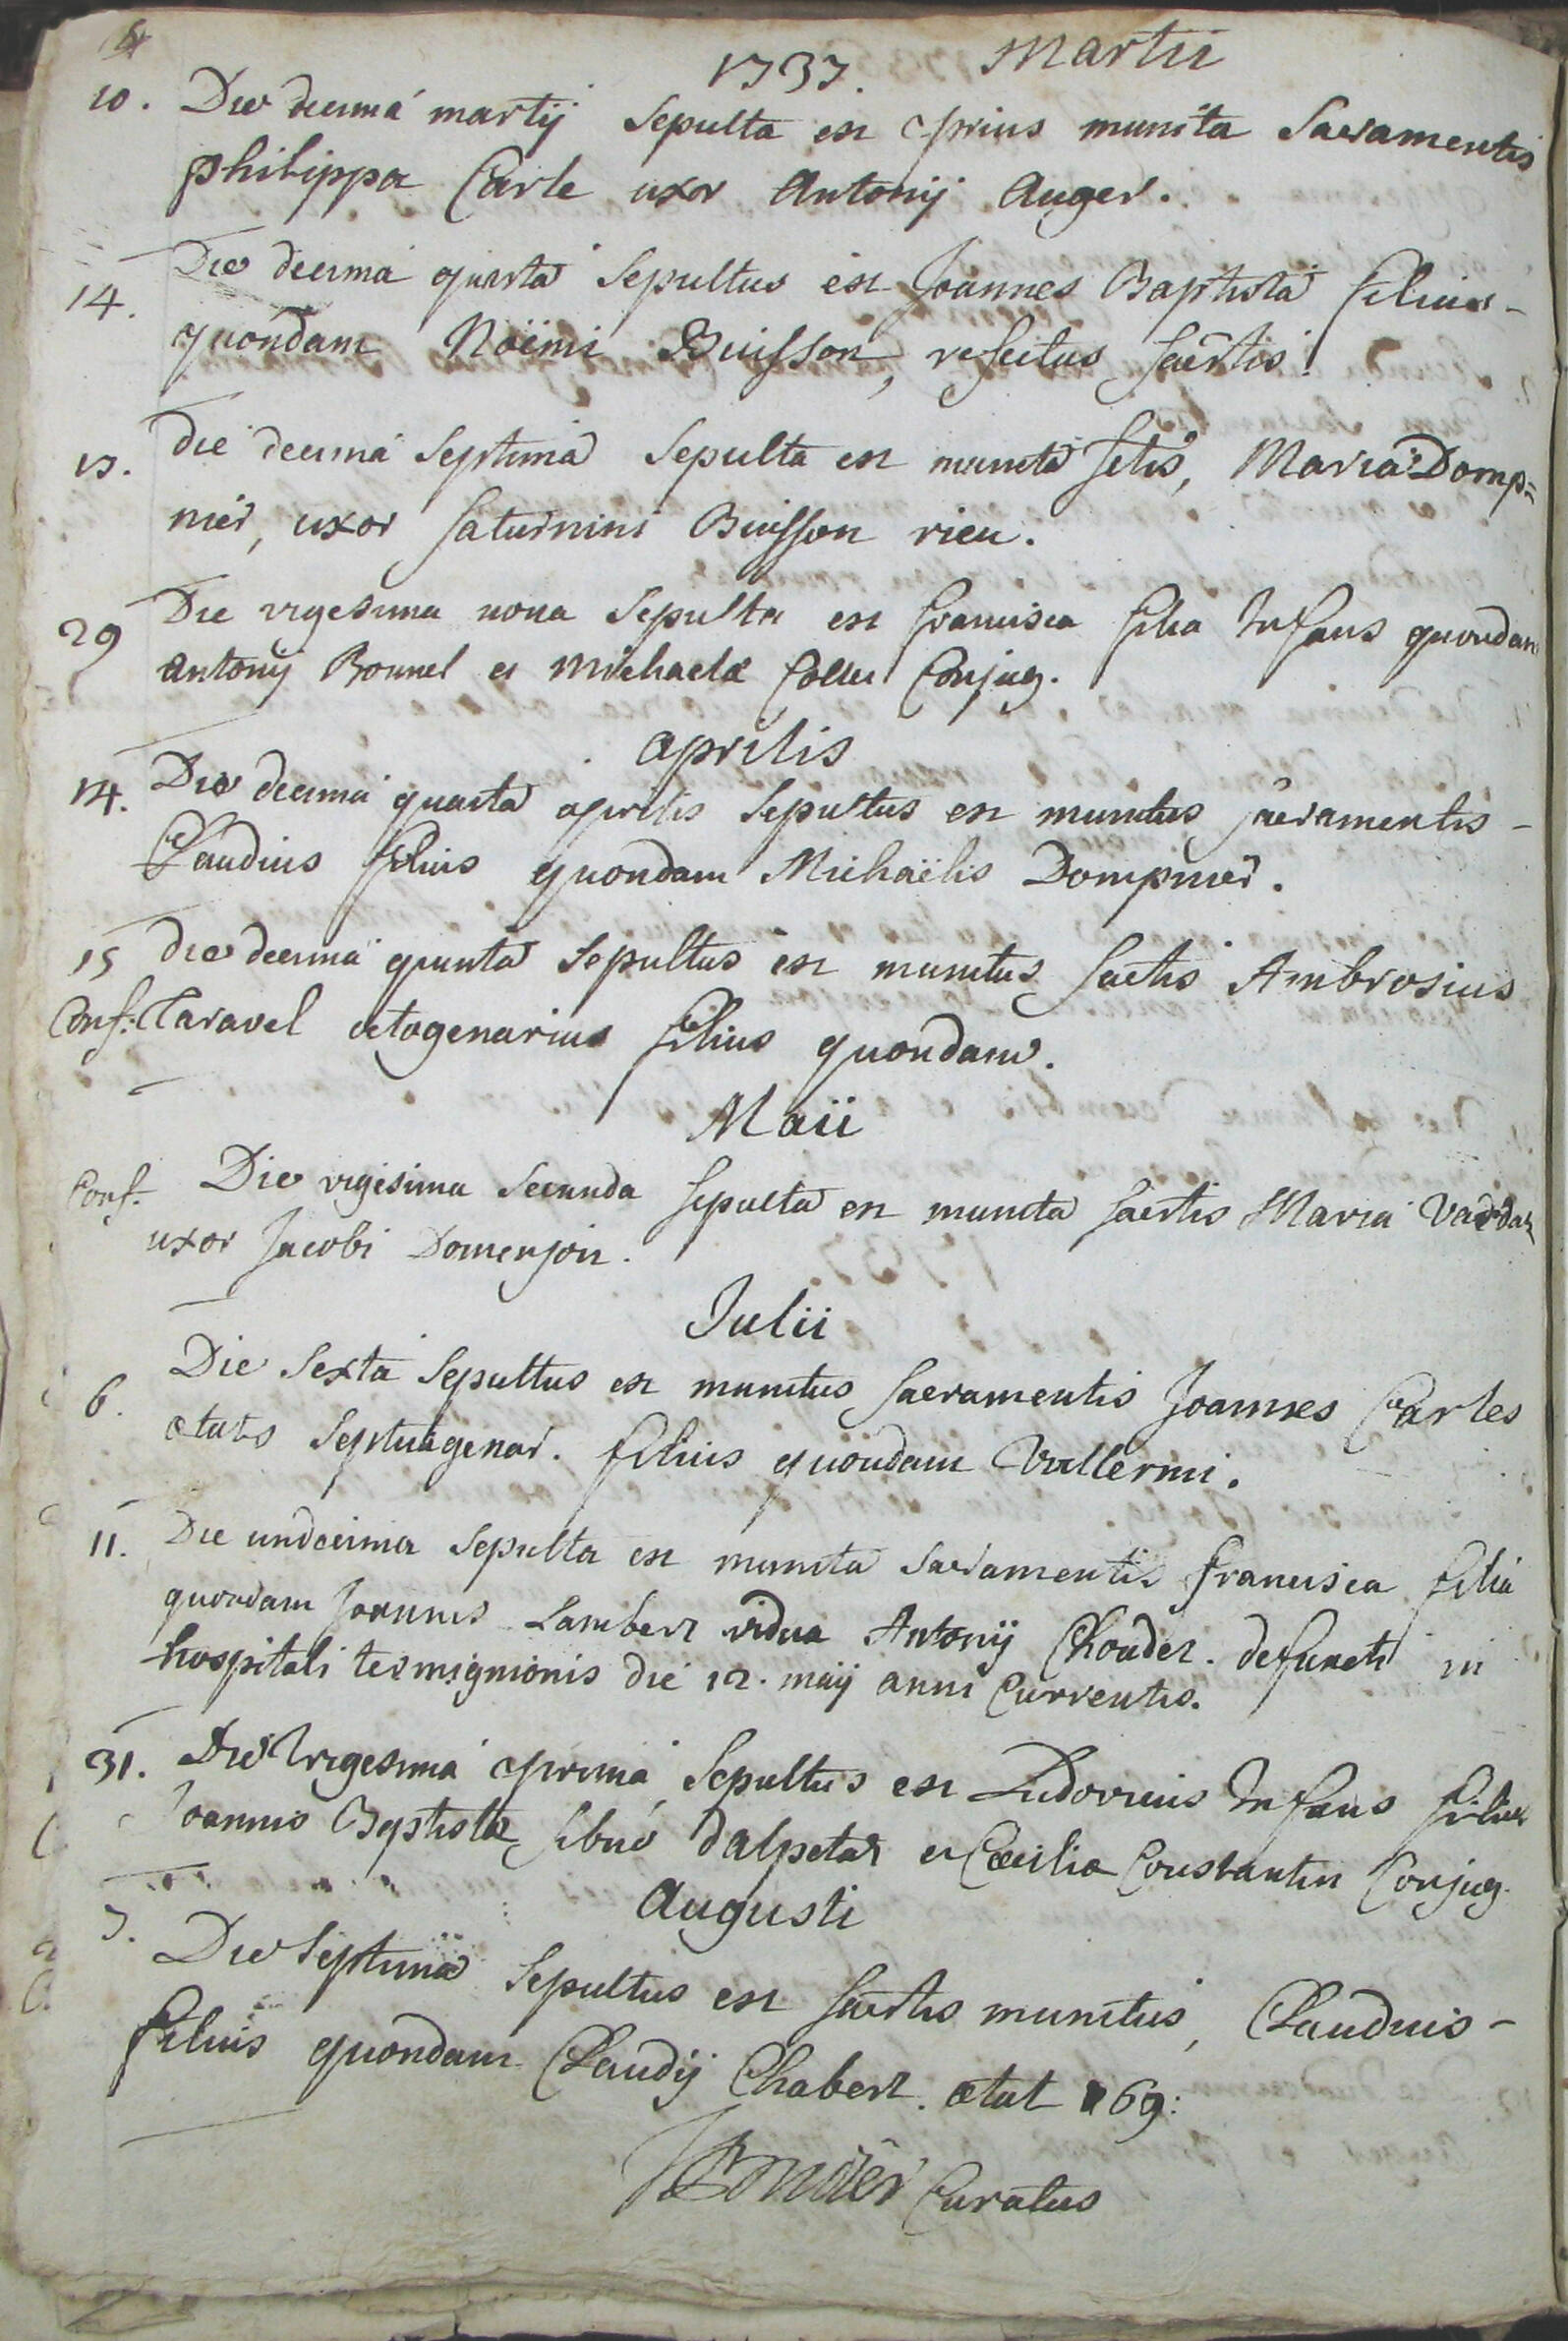 1737. Martii
10. Die decimá martij Sepulta est prius munita Sacramentis
philippa Carle uxor Antonij Auger.
14. Die decimá quartá Sepultus est Joannes Baptista filius -
quondam Nöemi Buisson, refectus sactis.
17. die decimá Septimá Sepulta est munita sctis, Maria Domp=
nier, uxor Saturnini Buisson rieu.
29 Die vigesima nona Sepulta est francisca filia Infans quondam
Antonij Bonnel et Michaelæ Collet Conjug.
Aprilis
14. Die decimá quartá aprilis Sepultus est munitus sacramentis -
Claudius filius quondam Michaëlis Dompnier.
15 die decimá quintá Sepultus est munitus sactis Ambrosius
Conf. Claravel octogenarius filius quondam.
Maii
Conf. Die vigesima Secunda Sepulta est munita sactis Maria
uxor Jacobi Domenjon.
Julii
6. Die Sexta Sepultus est munitus sacramentis Joannes Carles
ætatis Septuagenar. filius quondam Vullermi.
11. Die undecima Sepulta est munita sacramentis francisca filia
quondam Joannis Lambert vidua Antonij Chouder. defuncti in
hospitali termignionis die 12. maij anni Currentis.
31. Die trigesimá primá Sepultus est Ludovicus Infans filius
Joannis Baptistæ dalpetaz et Cæcilia Constantin Conjug.
Augusti
7. Die Septimá Sepultus est sactis munitus, Claudius -
filius quondam Claudij Chabert. ætat 69:
Curatus